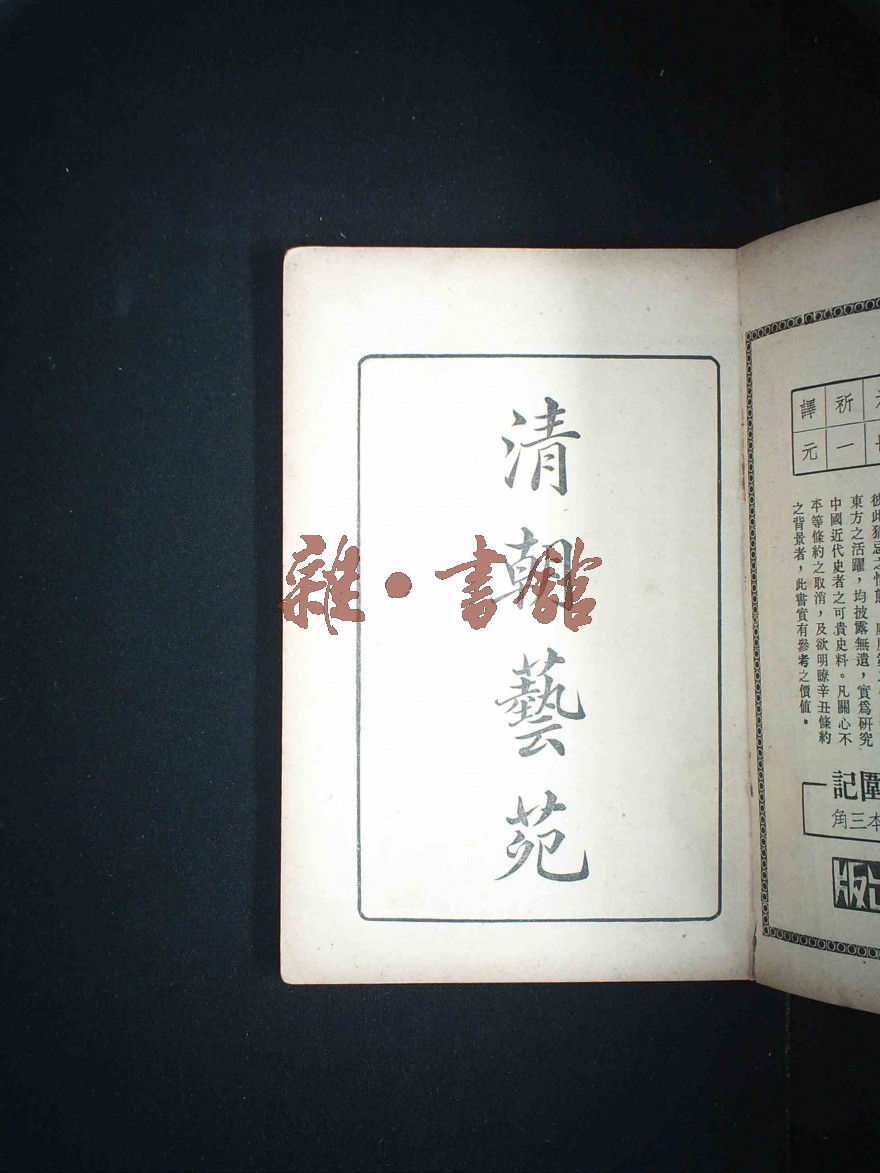 清朝藝苑
雜·書館
祈一
譯元
東方之活躍，均披露無遺，實爲研究
中國近代史者之可貴史料。凡關心不
平等條約之取消，及欲明瞭辛丑條約
之背景者，此書實有參考之價值。
圍記
本三角
出版